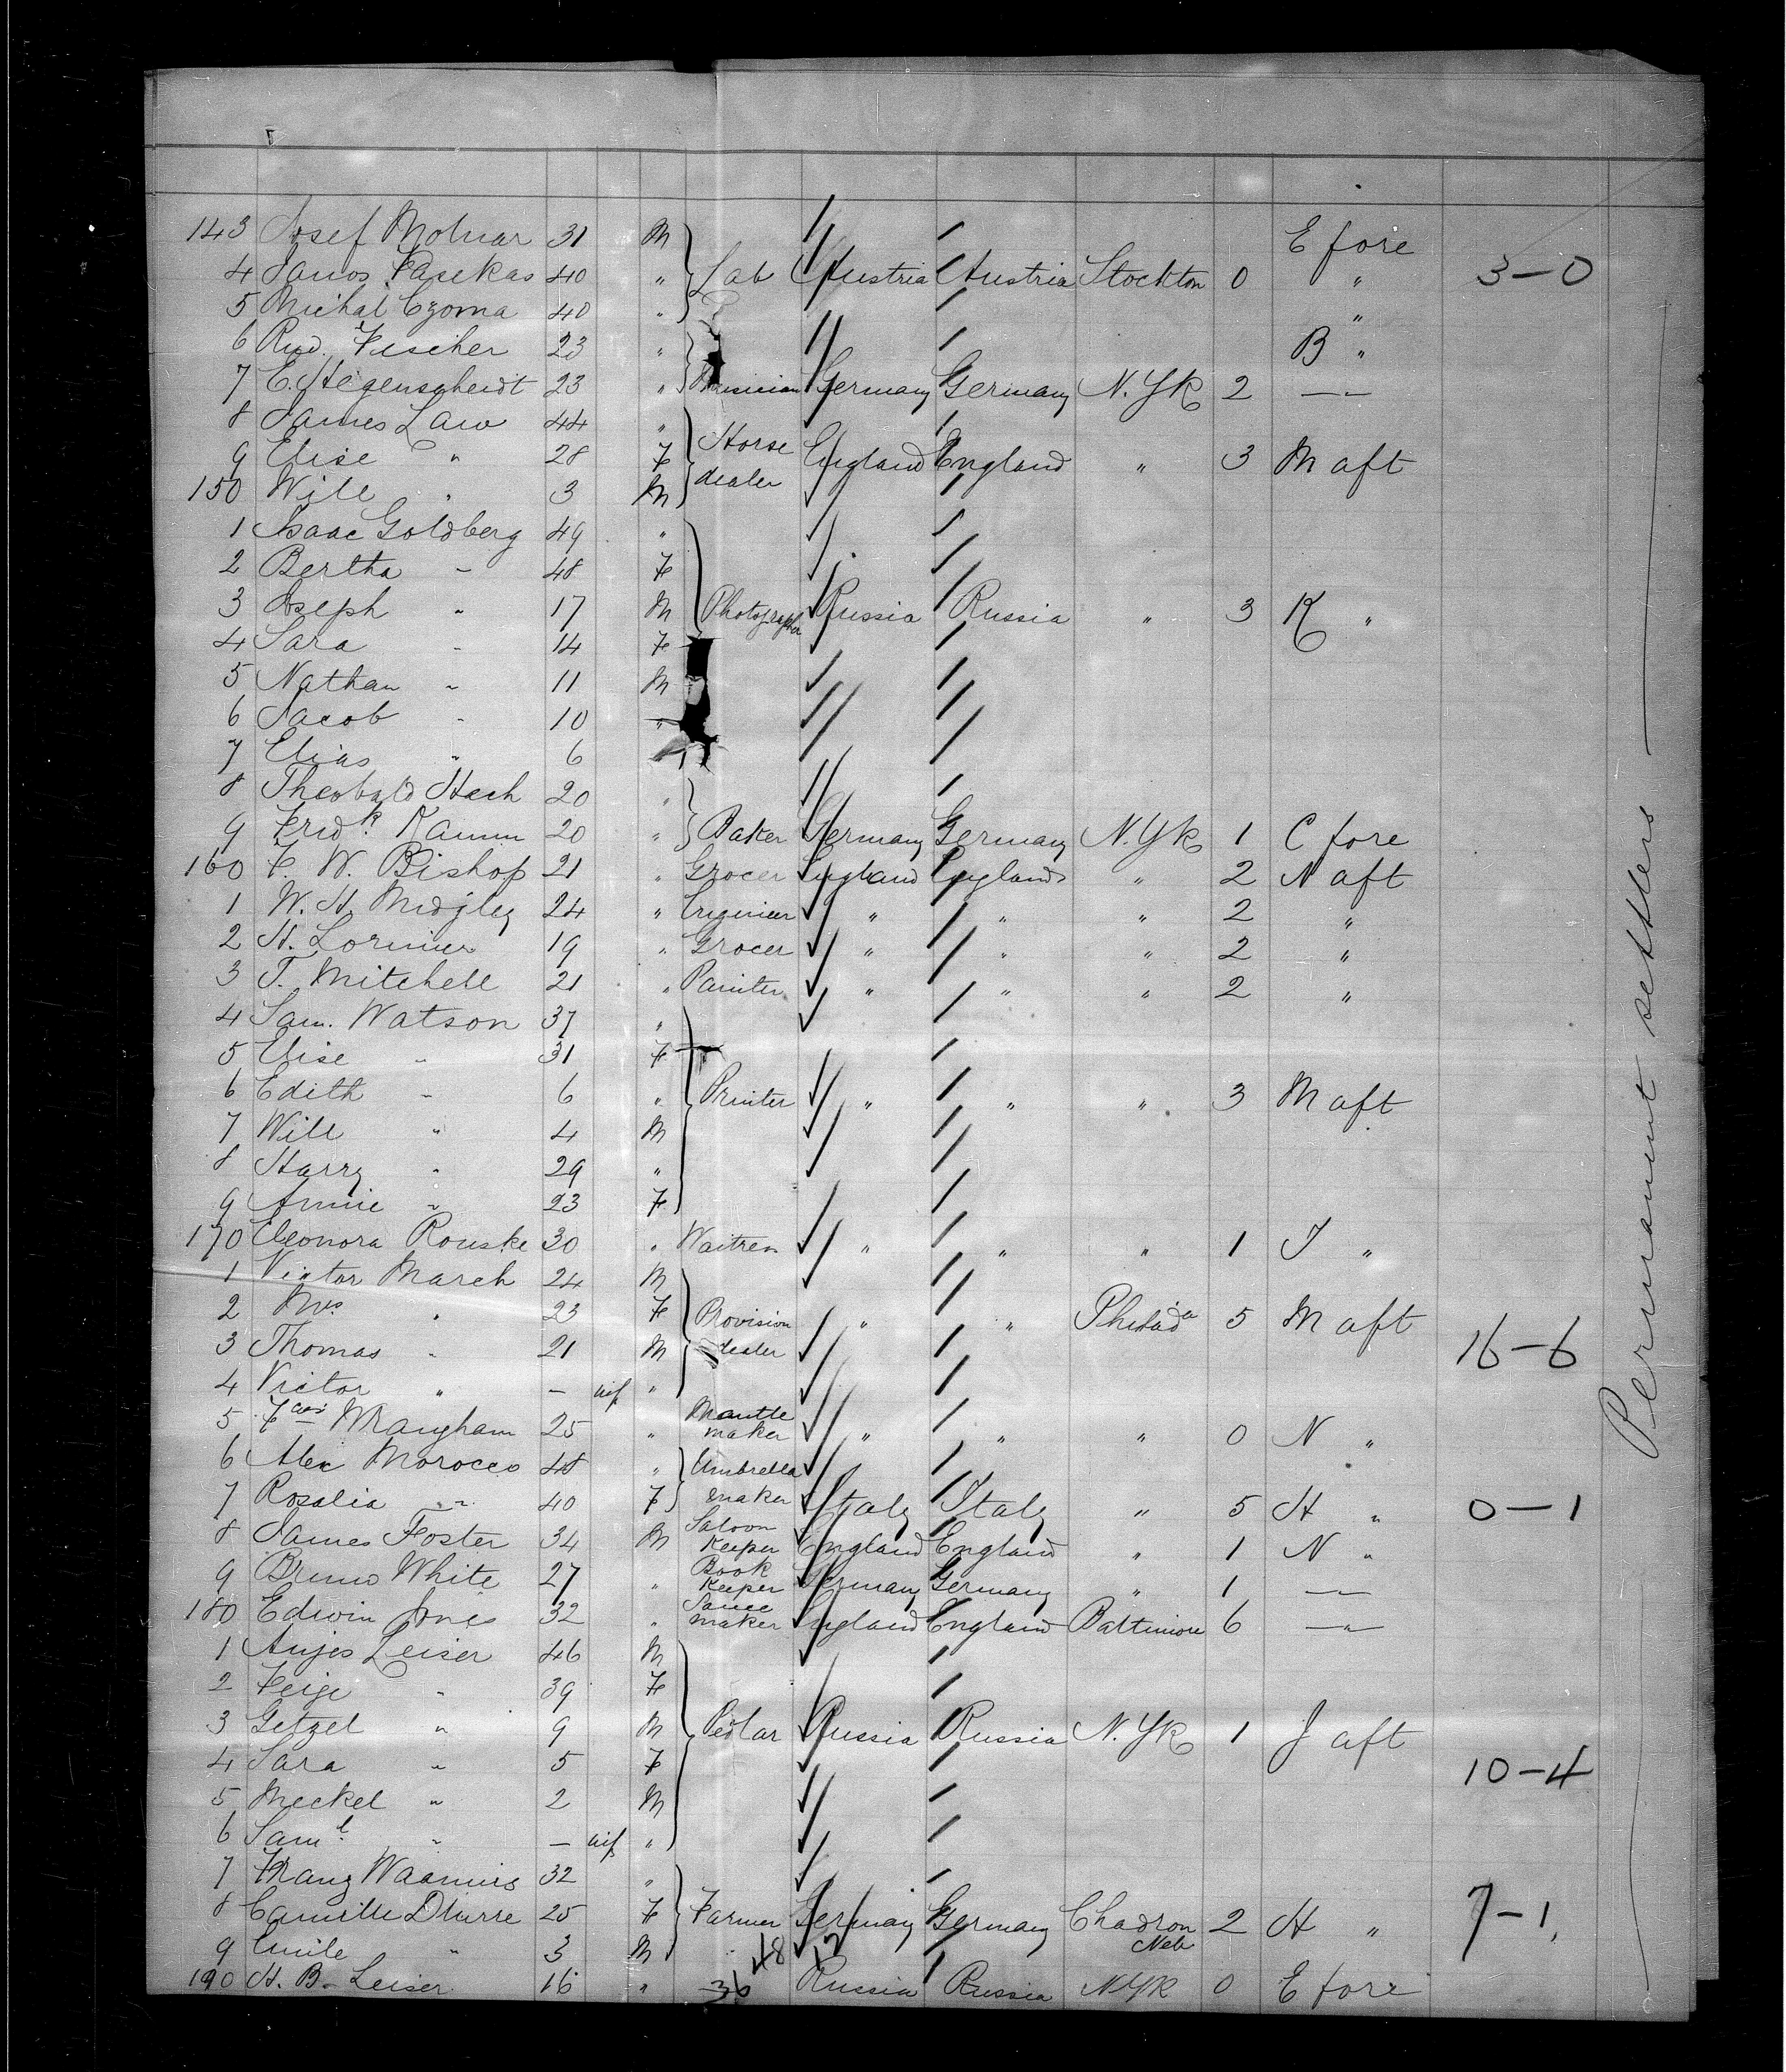 143 Josef Molnar 31 M E fore
4 Janos Fasekas 40 " Lab Austria Austria Stockton 0 " 3-0
5 Michal Czoma 40 " "
6 Rud. Fischer 23 " B "
7 E. Hegenscheidt 23 " Musician Germany Germany N.Yk 2 —"—
8 James Law 44 " Horse
9 Elise " 28 F dealer England England " 3 M aft
150 Will " 3 M
1 Isaac Goldberg 49 "
2 Bertha " 48 F
3 Joseph " 17 M Photographer Russia Russia " 3 K "
4 Sara " 14 F
5 Nathan " 11 M
6 Jacob " 10 "
7 Elias " 6
8 Theobald Hech 20 "
9 Fredk. Kamm 20 " Baker Germany Germany N.Yk 1 C fore
160 F. W. Bishop 21 " Grocer England England " 2 N aft
1 W. H. Midgley 24 " Engineer " " " 2 "
2 H. Lorimer 19 " Grocer " " " 2 "
3 T. Mitchell 21 " Painter " " " 2 "
4 Sam. Watson 37 "
5 Elise " 31 F
6 Edith " 6 " Printer " " " 3 M aft
7 Will " 4 M
8 Harry " 29 "
9 Annie " 23 F
170 Eleonora Rouske 30 " Waitress " " " 1 J "
1 Victor March 24 M
2 Mrs " 23 F Provision " " Philada 5 M aft
3 Thomas " 21 M dealer 16-6
4 Victor " — inf "
5 Fras Wrangham 25 " Mantle maker " " " 0 N "
6 Alex Morocco 48 " Umbrella
7 Rosalia " 40 F maker Italy Italy " 5 H " 0-1
8 James Foster 34 M Saloon Keeper England England " 1 N "
9 Bruno White 27 " Book Keeper Germany Germany " 1 —"—
180 Edwin Jones 32 " Sauce maker England England Baltimore 6 —"—
1 Leiser 46 M
2 Feige " 39 F
3 Getzel " 9 M Pedlar Russia Russia N.Yk 1 J aft
4 Sara " 5 F 10-4
5 Meckel " 2 M
6 Saml. " — inf "
7 Franz 32 "
8 Camille 25 F Farmer Germany Germany Chadron Neb 2 H " 7-1
9 Emile " 3 M 48 12
190 H. B. Leiser 16 " 36 Russia Russia NYK 0 E fore
Permanent settlers